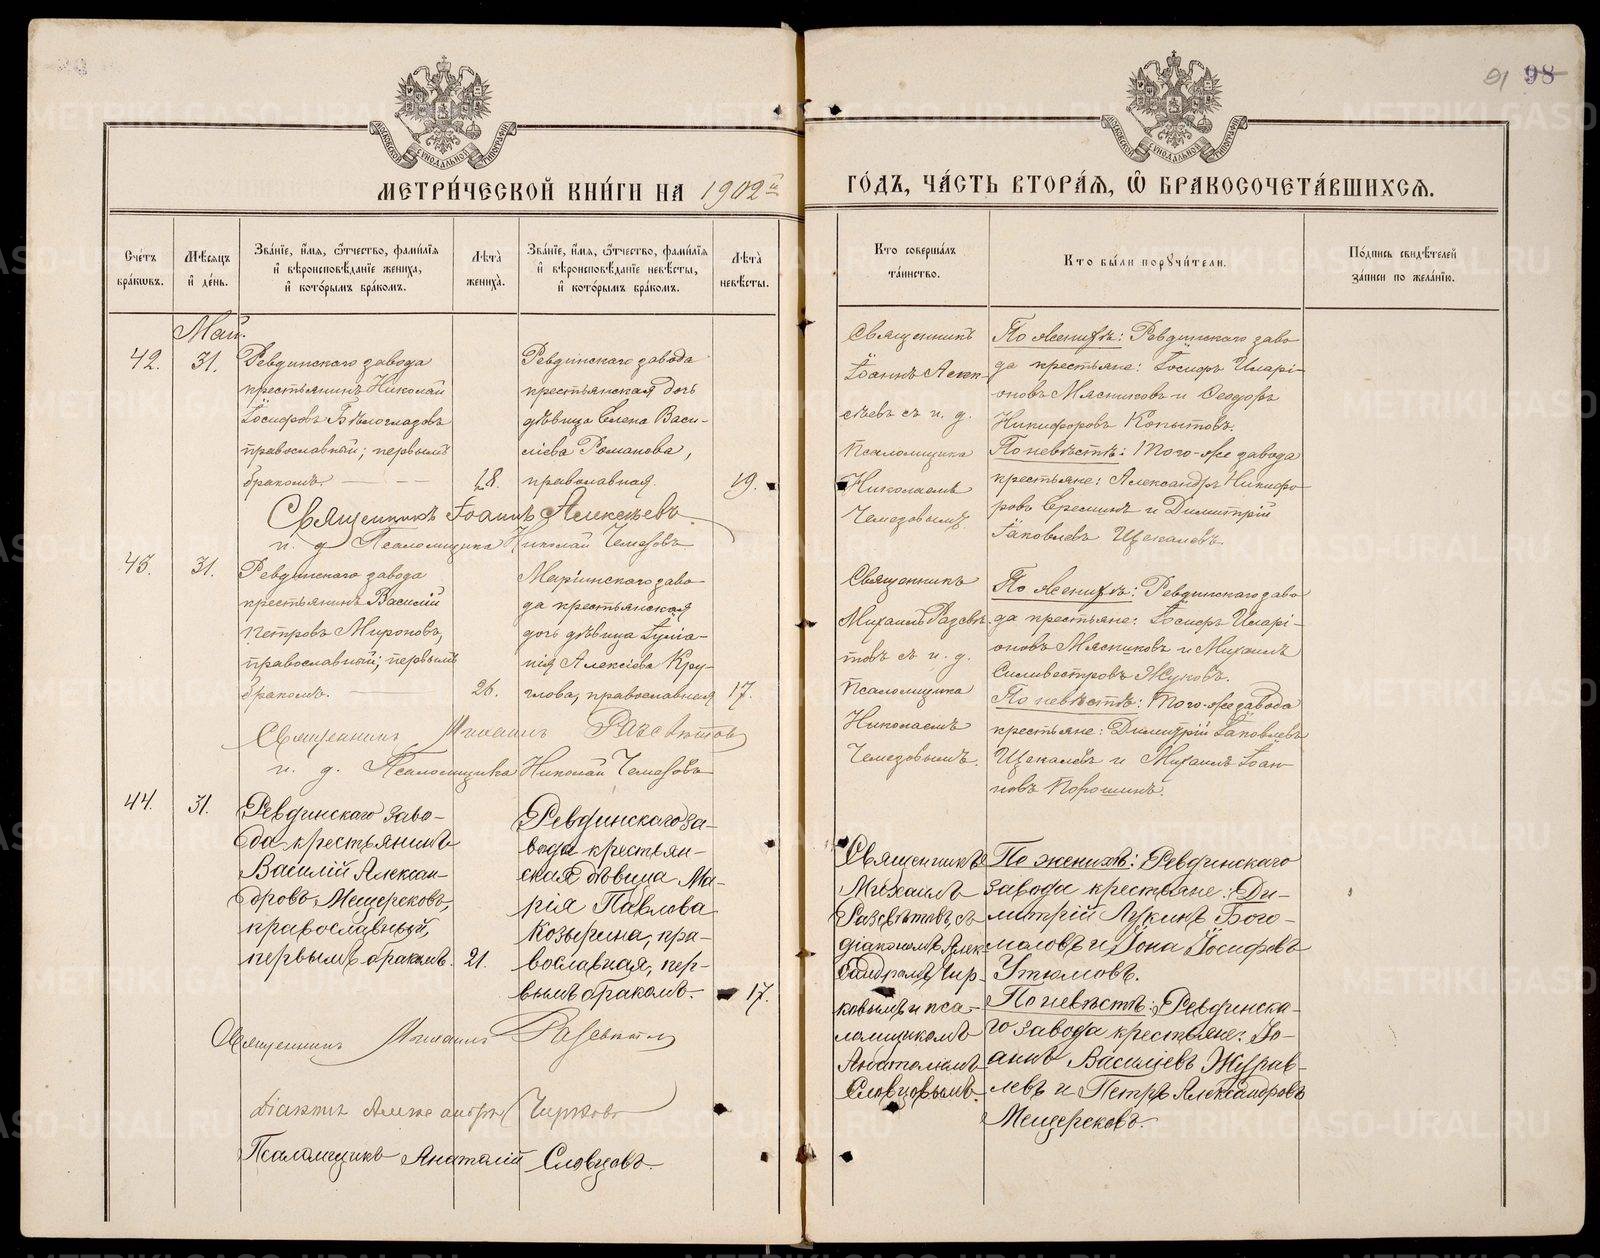 91 98
МЕТРИ́ЧЕСКОЙ КНИ́ГИ НА 1902й
ГО́ДЪ, ЧА́СТЬ ВТОРА́Ѧ, Ѽ БРАКОСОЧЕТА́ВШИХСѦ.
МОСКОВСКОЙ СѴНОДАЛЬНОЙ ТИПОГРАФІИ
МОСКОВСКОЙ СѴНОДАЛЬНОЙ ТИПОГРАФІИ
Сче́тъ бра́кѡвъ.
Мѣ́сяцъ и҆ де́нь.
Зва́нїе, и҆́мѧ, ѻ҆́тчество, фами́лїѧ
и҆ вѣроисповѣ́данїе жениха̀,
и҆ кото́рымъ бра́комъ.
Лѣ́та жениха̀.
Зва́нїе, и҆́мѧ, ѻ҆́тчество, фами́лїѧ
и҆ вѣроисповѣ́данїе невѣ́сты,
и҆ кото́рымъ бра́комъ.
Лѣ́та невѣ́сты.
Кто̀ соверша́лъ
та́инство.
Кто̀ бы́ли порꙋчи́тели.
По́дпись свидѣ́телей
за́писи по жела́нїю.
Май.
42.
31.
Ревдинскаго завода
крестьянинъ Николай
Іосифовъ Бѣлоглазовъ
православный; первымъ
бракомъ.
18.
Ревдинскаго завода
крестьянская дочь
дѣвица Елена Васи-
ліева Романова,
православная.
19.
Священникъ
Іоаннъ Алек-
сѣевъ съ и. д.
Псаломщика
Николаемъ
Чемезовымъ
По женихѣ: Ревдинскаго заво
да крестьяне: Іосифъ Иларі-
оновъ Мясниковъ и Ѳеодоръ
Никифоровъ Копытовъ.
По невѣстѣ: Того-же завода
крестьяне: Александръ Никифо
ровъ Еремины и Димитрій
Іаковлевъ Щекалевъ.
Священникъ Іоаннъ Алексѣевъ
и. д. Псаломщика Николай Чемезовъ
43.
31.
Ревдинскаго завода
крестьянинъ Василій
Петровъ Мироновъ,
православный; первымъ
бракомъ.
26.
Маріинскаго заво-
да крестьянская
дочь дѣвица Іуліа-
нія Алексіева Кру-
глова, православная
17.
Священникъ
Михаилъ Разсвѣ-
товъ съ и. д.
Псаломщика
Николаемъ
Чемезовымъ.
По женихѣ: Ревдинскаго заво
да крестьяне: Іосифъ Иларі-
оновъ Мясниковъ и Михаилъ
Силивестровъ Жуковъ.
По невѣстѣ: Того-же завода
крестьяне: Димитрій Іаковлевъ
Щекалевъ и Михаилъ Іоан-
новъ Порошинъ.
Священникъ Михаилъ Разсвѣтовъ
и. д. Псаломщика Николай Чемезовъ
44.
31.
Ревдинскаго заво-
да крестьянинъ
Василій Алексан-
дровъ Мещерековъ,
православный,
первымъ бракомъ.
21.
Ревдинскаго за-
вода крестьян-
ская дѣвица Ма-
рія Павлова
Козырина, пра-
вославная, пер-
вымъ бракомъ.
17.
Священникъ
Михаилъ
Разсвѣтовъ съ
діакономъ Алек-
сандромъ Чир-
ковымъ и пса-
ломщикомъ
Анатоліемъ
Словцовымъ.
По женихѣ: Ревдинскаго
завода крестьяне: Ди-
митрій Лукинъ Бого-
моловъ и Іона Іосифовъ
Утюмовъ.
По невѣстѣ: Ревдинска-
го завода крестьяне: Іо-
аннъ Василіевъ Журав-
левъ и Петръ Александровъ
Мещерековъ.
Священникъ Михаилъ Разсвѣтовъ
Діаконъ Александръ Чирковъ
Псаломщикъ Анатолій Словцовъ.
METRIKI.GASO-URAL.RU